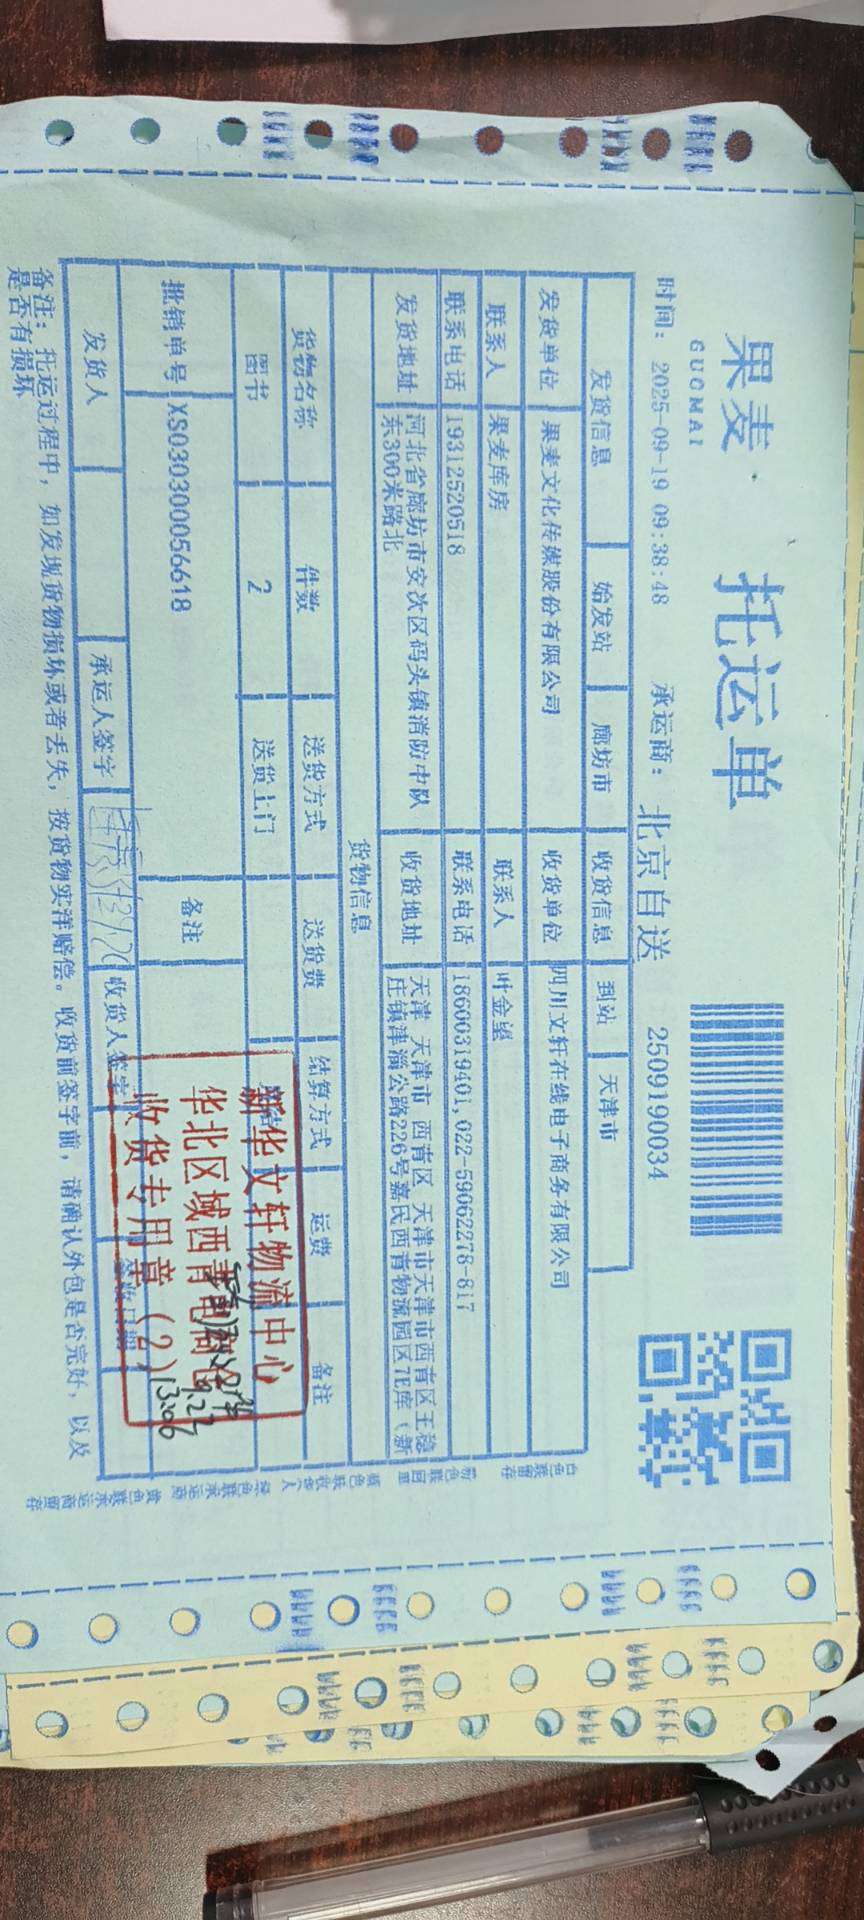 果麦
GUOMAI
托运单
时间: 2025-09-19 09:38:48 承运商: 北京自送 2509190034
发货信息 始发站 廊坊市 收货信息 到站 天津市
发货单位 果麦文化传媒股份有限公司 收货单位 四川文轩在线电子商务有限公司
联系人 果麦库房 联系人 叶金望
联系电话 19312520518 联系电话 18600319401,022-59062278-817
发货地址 河北省廊坊市安次区码头镇消防中队 收货地址 天津 天津市 西青区 天津市天津市西青区王稳
东300米路北 庄镇津淄公路226号嘉民西青物流园区7E库(新
货物信息
货物名称 件数 送货方式 送货费 结算方式 运费 备注
图书 2 送货上门
批销单号 XS030300056618 备注
发货人 承运人签字 收货人签字
备注: 托运过程中, 如发现货物损坏或者丢失, 按货物实洋赔偿。收货前签字前, 请确认外包是否完好, 以及
是否有损坏
新华文轩物流中心
华北区域西青电商仓
收货专用章(2)
9.23
13:06
白色联留存
粉色联回单
蓝色联收货人
绿色联承运商
黄色联承运商留存